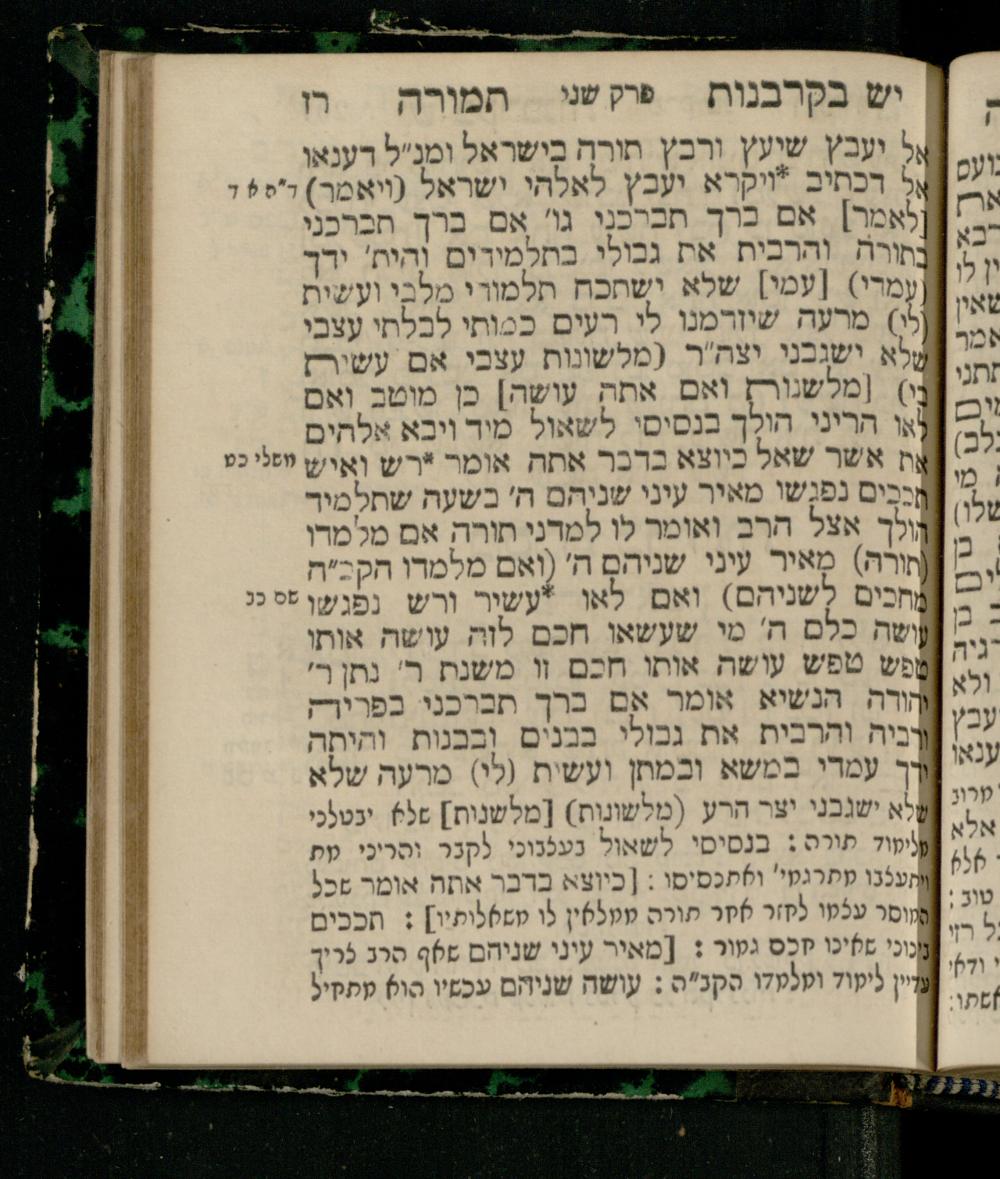 יש בקרבנות פרק שני תמורה רז
אל יעבץ שיעץ ורבץ תורה בישראל ומנ״ל דענאו
אל דכתיב *ויקרא יעבץ לאלהי ישראל (ויאמר) ד״ה א ד
[לאמר] אם ברך תברכני גו׳ אם ברך תברכני
בתורה והרבית את גבולי בתלמידים והית׳ ידך
(עמדי) [עמי] שלא ישתכח תלמודי מלבי ועשית
(לי) מרעה שיזדמנו לי רעים כמותי לבלתי עצבי
שלא ישגבני יצה״ר (מלשונות עצבי אם עשירת
בי) [מלשנות ואם אתה עושה] כן מוטב ואם
לאו הריני הולך בנסיסי לשאול מיד ויבא אלהים
את אשר שאל כיוצא בדבר אתה אומר *רש ואיש משלי כט
תככים נפגשו מאיר עיני שניהם ה׳ בשעה שתלמיד
הולך אצל הרב ואומר לו למדני תורה אם מלמדו
(תורה) מאיר עיני שניהם ה׳ (ואם מלמדו הקב״ה
מחכים לשניהם) ואם לאו *עשיר ורש נפגשו שם כב
עושה כלם ה׳ מי שעשאו חכם לזה עושה אותו
טפש טפש עושה אותו חכם זו משנת ר׳ נתן ר׳
יהודה הנשיא אומר אם ברך תברכני בפריה
ורביה והרבית את גבולי בבנים ובבנות והיתה
ידך עמדי במשא ובמתן ועשית (לי) מרעה שלא
שלא ישגבני יצר הרע (מלשונות) [מלשנות] שלא יבטלני
מלימוד תורה : בנסיסי לשאול בעצבוני לקבר והריני מת
ויתעצבו מתרגמי׳ ואתנסיסו : [כיוצא בדבר אתה אומר שכל
המוסר עצמו לחזר אחר תורה ממלאין לו משאלותיו] : תככים
בינוני שאינו חכם גמור : [מאיר עיני שניהם שאף הרב צריך
עדיין לימוד ומלמדו הקב״ה : עושה שניהם עכשיו הוא מתחיל